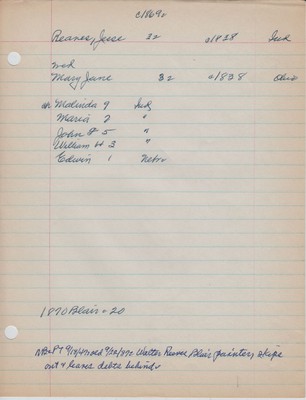 c1869
Reaves, Jesse 32 c1838 Ind
wed
Mary Jane 32 c1838 Ohio
ch Malinda 9 Ind
Maria 7 "
John F 5 "
William H 3 "
Edwin 1 Nebr
1870 Blair - 20
Walter Reaves, Blair, painter, skips
out & leaves debts behind